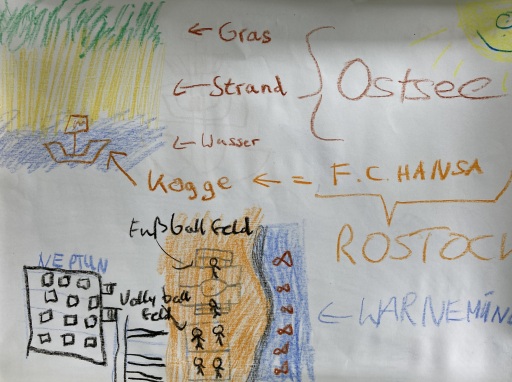 ← Gras
← Strand
Ostsee
← Wasser
Kogge ← = F.C. HANSA
ROSTOCK
Fußballfeld
NEPTUN
Vollyball
feld
← WARNEMÜN